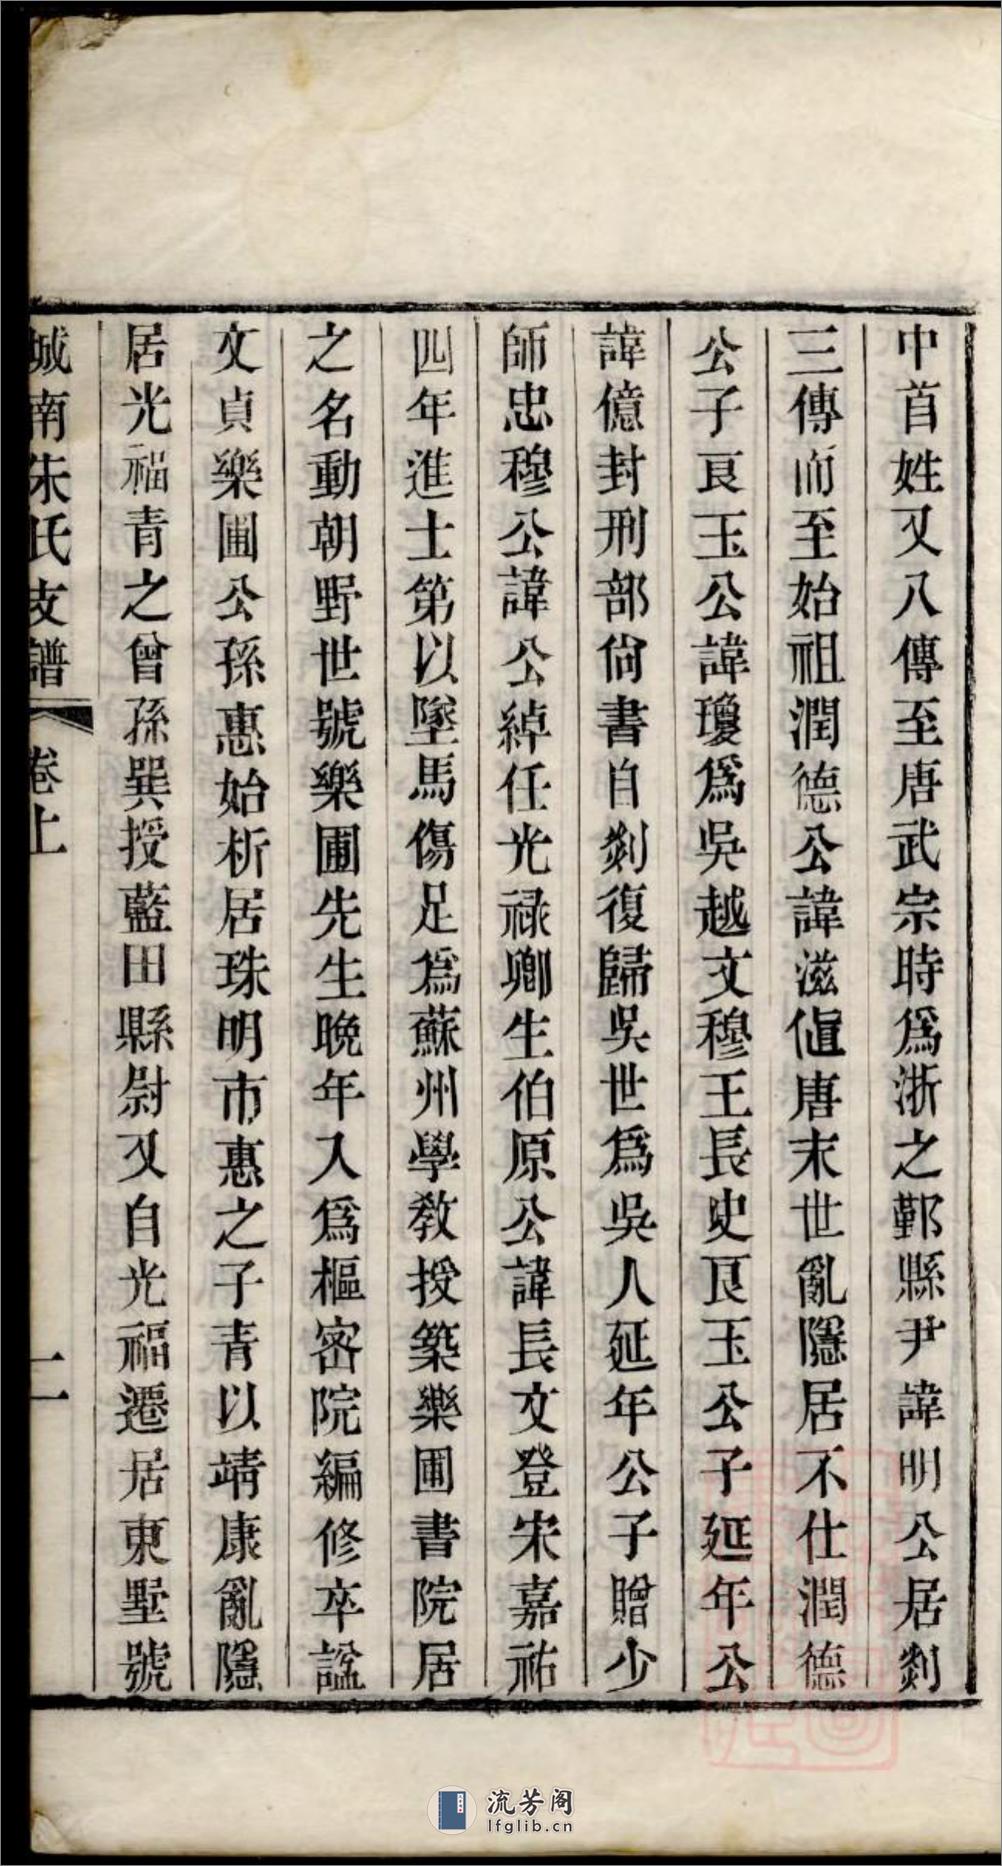 中首姓又八傳至唐武宗時爲浙之鄞縣尹諱明公居剡
三傳而至始祖潤德公諱滋值唐末世亂隱居不仕潤德
公子艮玉公諱瓊爲吳越文穆王長史艮玉公子延年公
諱億封刑部尙書自剡復歸吳世爲吳人延年公子贈少
師忠穆公諱公綽任光祿卿生伯原公諱長文登宋嘉祐
四年進士第以墜馬傷足爲蘇州學敎授築樂圃書院居
之名動朝野世號樂圃先生晚年入爲樞密院編修卒諡
文貞樂圃公孫惠始析居珠明市惠之子青以靖康亂隱
居光福青之曾孫巽授藍田縣尉又自光福遷居東墅號
城南朱氏支譜 卷上 二
流芳阁
lfglib.cn